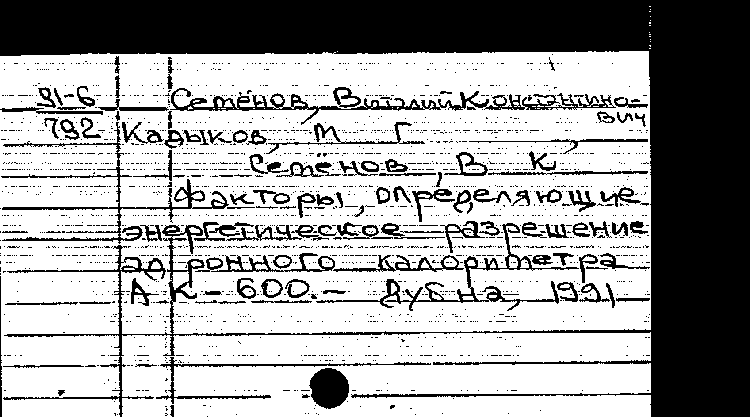 91-6 Семёнов, Виталий Константино-
вич
792 Кадыков, М Г
Семёнов, В К
Факторы, определяющие
энергетическое разрешение
адронного калориметра
АК-600.- Дубна, 1991